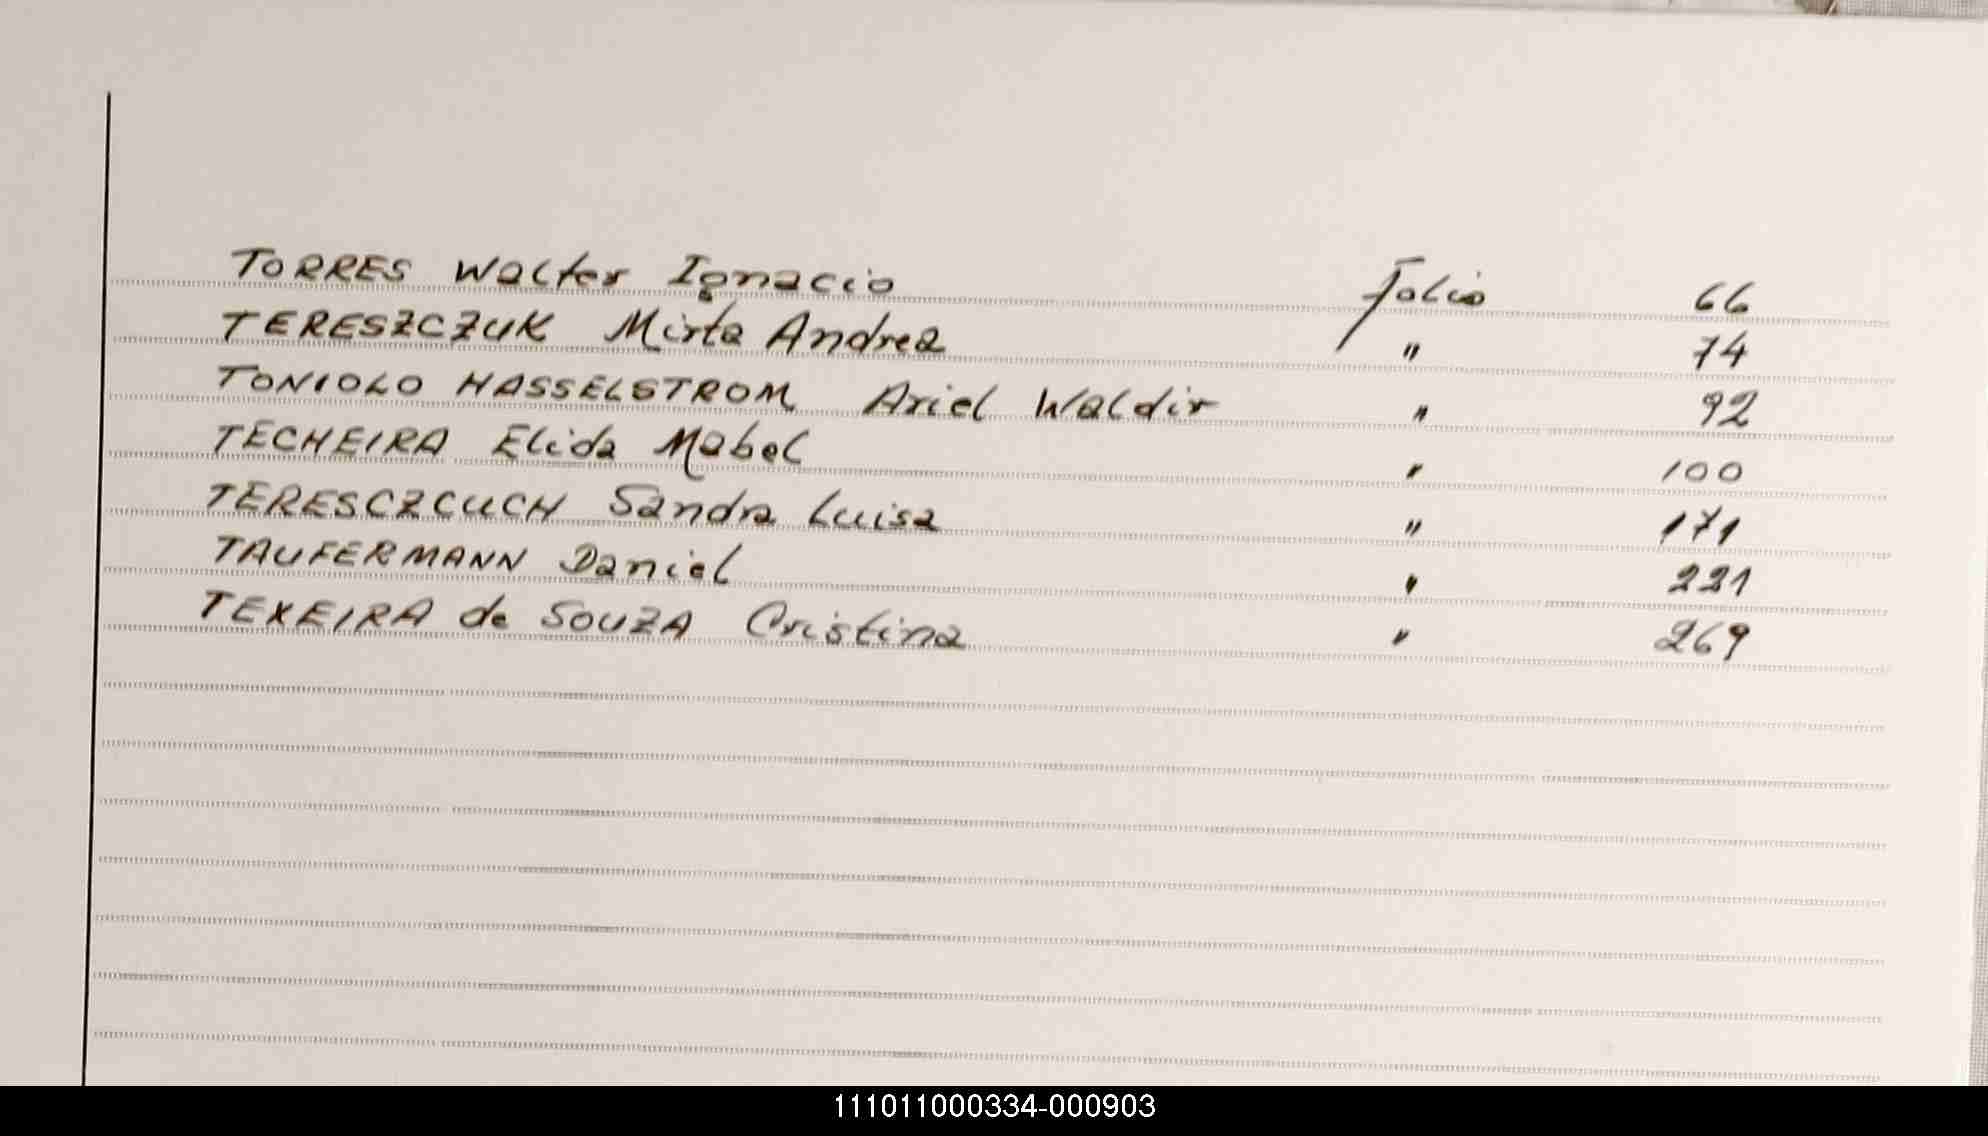 TORRES Walter Ignacio Folio 66
TERESZCZUK Mirta Andrea " 74
TONIOLO HASSELSTROM Ariel Waldir " 92
TECHEIRA Elida Mabel " 100
TERESCZCUCH Sandra Luisa " 171
TAUFERMANN Daniel " 221
TEXEIRA de SOUZA Cristina " 269
111011000334-000903